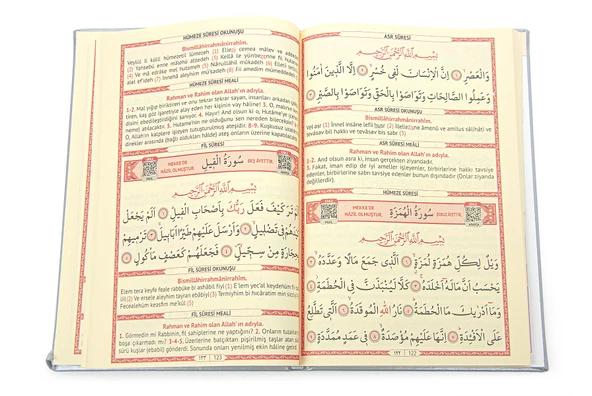 ASR SÛRESİ
بِسْمِ اللهِ الرَّحْمٰنِ الرَّحِيمِ
وَالْعَصْرِۙ ﴿١﴾ اِنَّ الْاِنْسَانَ لَفِي خُسْرٍۙ ﴿٢﴾ اِلَّا الَّذِينَ اٰمَنُوا
وَعَمِلُوا الصَّالِحَاتِ وَتَوَاصَوْا بِالْحَقِّ وَتَوَاصَوْا بِالصَّبْرِ ﴿٣﴾
ASR SÛRESİ OKUNUŞU
Bismillâhirrahmânirrahîm.
Vel asr (1) İnnel insâne lefîi husr (2) İllellezîne âmenû ve amilus sâlihâti ve
tevâsav bil hakkı ve tevâsav bis sabr (3)
ASR SÛRESİ MEALİ
Rahman ve Rahim olan Allah'ın adıyla.
1-2. And olsun asra ki, insan gerçekten ziyandadır.
3. Fakat, iman edip de iyi ameller işleyenler, birbirlerine hakkı tavsiye
edenler, birbirlerine sabrı tavsiye edenler bunun dışındadır (Onlar ziyanda
değillerdir).
HÜMEZE SÛRESİ
MEKKE'DE NÂZİL OLMUŞTUR. سُورَةُ الْهُمَزَةِ
بِسْمِ اللهِ الرَّحْمٰنِ الرَّحِيمِ
وَيْلٌ لِكُلِّ هُمَزَةٍ لُمَزَةٍۙ ﴿١﴾ اَلَّذِي جَمَعَ مَالًا وَعَدَّدَهُۙ ﴿٢﴾
يَحْسَبُ اَنَّ مَالَهُ اَخْلَدَهُۚ ﴿٣﴾ كَلَّا لَيُنْبَذَنَّ فِي الْحُطَمَةِۘ ﴿٤﴾
وَمَا اَدْرٰيكَ مَا الْحُطَمَةُۜ ﴿٥﴾ نَارُ اللهِ الْمُوقَدَةُۙ ﴿٦﴾ اَلَّتِي تَطَّلِعُ
عَلَى الْاَفْـِٔدَةِۜ ﴿٧﴾ اِنَّهَا عَلَيْهِمْ مُؤْصَدَةٌۙ ﴿٨﴾ فِي عَمَدٍ مُمَدَّدَةٍ ﴿٩﴾
١٢٢ 122
HÜMEZE SÛRESİ OKUNUŞU
Bismillâhirrahmânirrahîm.
Veylül li külli hümezetil lümezeh (1) Ellezî cemea mâlev ve addedeh
(2) Yahsebü enne mâlehû ahledeh (3) Kellâ le yünbezenne fil
(4) Ve mâ edrâke mel hutameh (5) Nârullâhil mûkadeh (6) Elletî
alel ef'ideh (7) İnnehâ aleyhim mü'sadeh (8) Fîi amedim mümeddedeh
HÜMEZE SÛRESİ MEALİ
Rahman ve Rahim olan Allah'ın adıyla.
1-2. Mal yığıp biriktiren ve onu tekrar tekrar sayan, insanları arkadan
tiren, kaş göz işaretiyle alay eden her kişinin vay hâline! 3. O, malının
disini ebedîleştirdiğini sanıyor. 4. Hayır! And olsun ki o, Hutame'ye
nem) atılacaktır. 5. Hutame'nin ne olduğunu sen nereden bileceksin? 6-7.
Allah'ın kalplere işleyen tutuşturulmuş ateşidir. 8-9. Kuşkusuz
uzatılmış direkler arasında (bağlı oldukları hâlde) ateş onların üzerine kapatılacaktır.
FÎL SÛRESİ
MEKKE'DE NÂZİL OLMUŞTUR. سُورَةُ الْفِيلِ BEŞ ÂYETTİR.
بِسْمِ اللهِ الرَّحْمٰنِ الرَّحِيمِ
اَلَمْ تَرَ كَيْفَ فَعَلَ رَبُّكَ بِاَصْحَابِ الْفِيلِۜ ﴿١﴾ اَلَمْ يَجْعَلْ
كَيْدَهُمْ فِي تَضْلِيلٍۙ ﴿٢﴾ وَاَرْسَلَ عَلَيْهِمْ طَيْرًا اَبَابِيلَۙ ﴿٣﴾ تَرْمِيهِمْ
بِحِجَارَةٍ مِنْ سِجِّيلٍۙ ﴿٤﴾ فَجَعَلَهُمْ كَعَصْفٍ مَأْكُولٍ ﴿٥﴾
FÎL SÛRESİ OKUNUŞU
Bismillâhirrahmânirrahîm.
Elem tera keyfe feale rabbüke bi ashâbil fîyl (1) E'lem yec'al keydehüm fîi
(2) Ve ersele aleyhim tayran ebâbîyl (3) Termîyhim bi hıcâratim min
Fecealehüm keasfim me'kûl (5)
FÎL SÛRESİ MEALİ
Rahman ve Rahim olan Allah'ın adıyla.
1. Görmedin mi Rabbinin, fil sahiplerine ne yaptığını? 2. Onların
boşa çıkarmadı mı? 3-4-5. Üzerlerine balçıktan pişirilmiş taşlar atan
sürü kuşlar (ebabil) gönderdi. Sonunda onları yenilmiş ekin hâline
١٢٣ 123